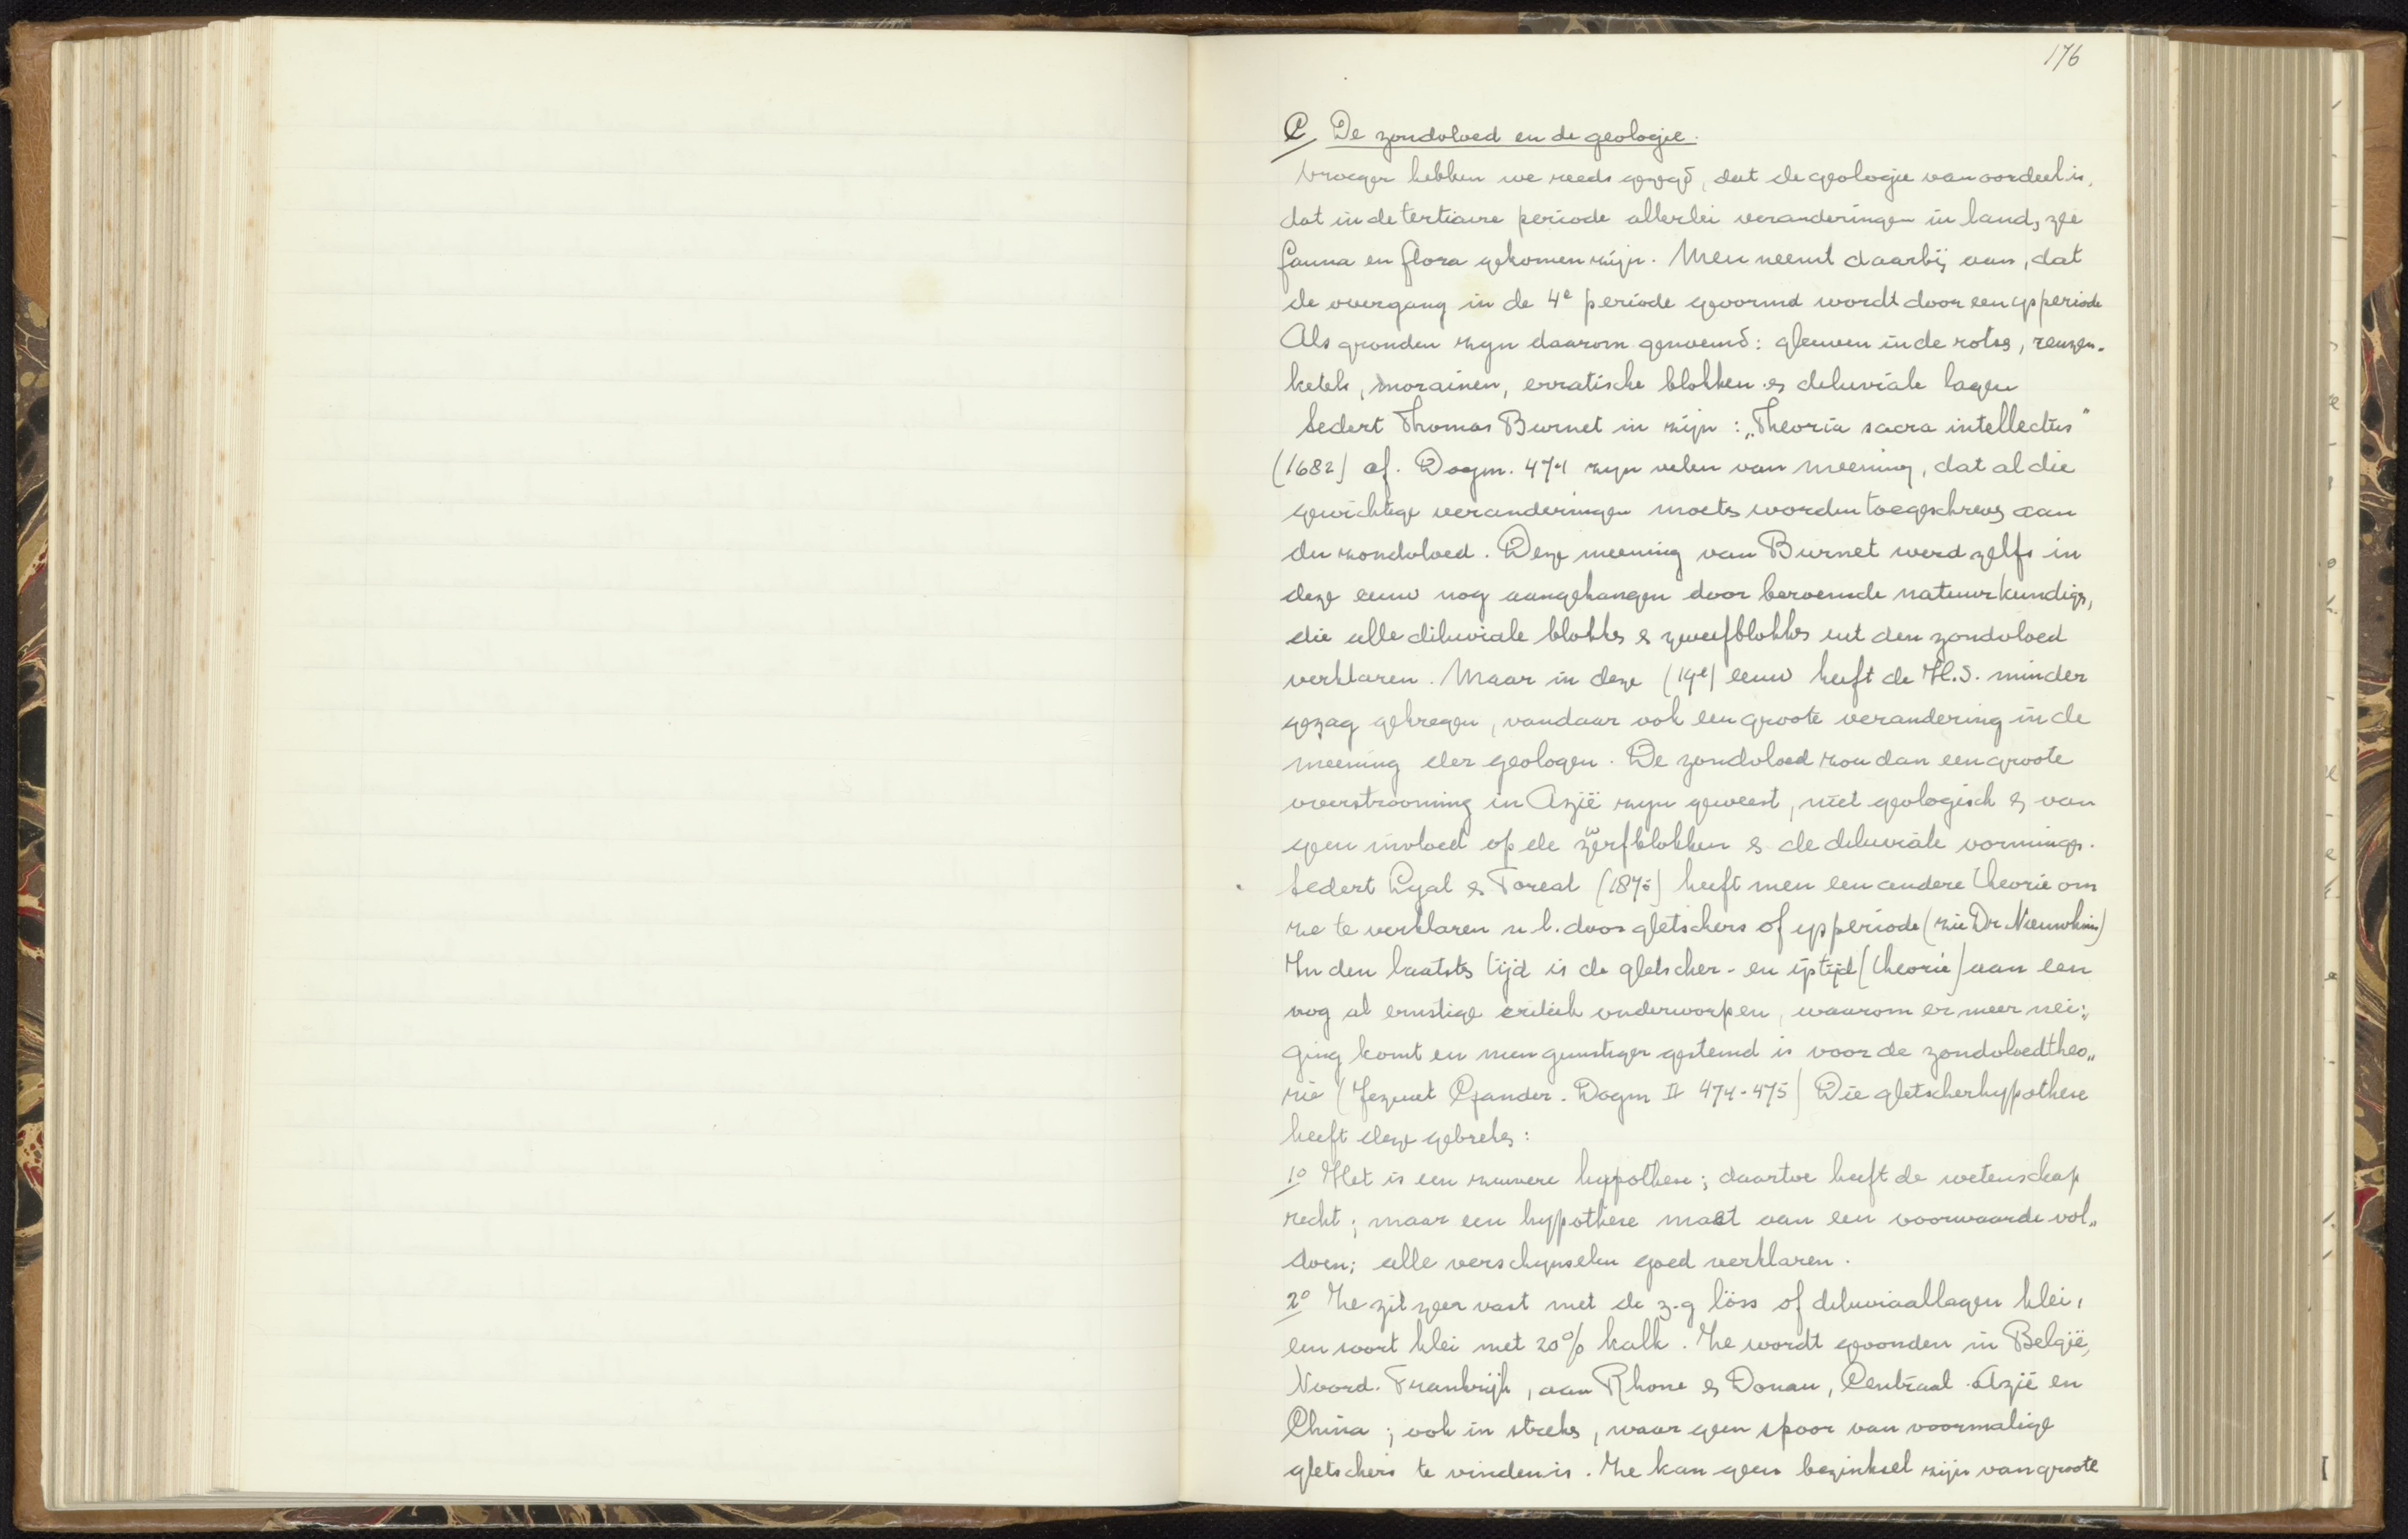 176
C De zondvloed en de geologie.
Vroeger hebben we reeds gezegd, dat de geologie van oordeel is,
dat in de tertiaire periode allerlei veranderingen in land, zee
fauna en flora gekomen zijn. Men neemt daarbij aan, dat
de overgang in de 4e periode gevormd wordt door een ysperiode
Als gronden zyn daarom genoemd: gleuven in de rotsen, reuzen-
ketels, morainen, erratische blokken en diluviale lagen
Sedert Thomas Burnet in zijn: „Theoria sacra intellectus"
(1682) cf. Dogm. 474 zyn velen van meening, dat al die
gewichtige veranderingen moeten worden toegeschreven aan
den zondvloed. Deze meening van Burnet werd zelfs in
deze eeuw nog aangehangen door beroemde natuurkundigen,
die alle diluviale blokken en zwerfblokken uit den zondvloed
verklaren. Maar in deze (19e) eeuw heeft de H.S. minder
gezag gekregen, vandaar ook een groote verandering in de
meening der geologen. De zondvloed zou dan een groote
overstrooming in Azië zyn geweest, niet geologisch en van
geen invloed op de zwerfblokken en de diluviale vormingen.
Sedert Lyal en Toreal (1875) heeft men een andere theorie om
ze te verklaren n.l. door gletschers of ysperiode (zie Dr.
In den laatsten tijd is de gletscher- en ijstijd (theorie) aan een
nog al ernstige critiek onderworpen, waarom er meer nei„
ging komt en men gunstiger gestemd is voor de zondvloedtheo„
rie (Jezuiet Gander. Dogm II 474-475) Die gletscherhypothese
heeft deze gebreken:
1o Het is een zuivere hypothese; daartoe heeft de wetenschap
recht; maar een hypothese moet aan een voorwaarde vol„
doen; alle verschynselen goed verklaren.
2o Ze zit zeer vast met de z.g löss of diluviaallagen klei,
een soort klei met 20% kalk. Ze wordt gevonden in België,
Noord-Frankrijk, aan Rhone en Donau, Centraal-Azië en
China; ook in streken, waar geen spoor van voormalige
gletschers te vinden is. Ze kan geen bezinksel zijn van groote